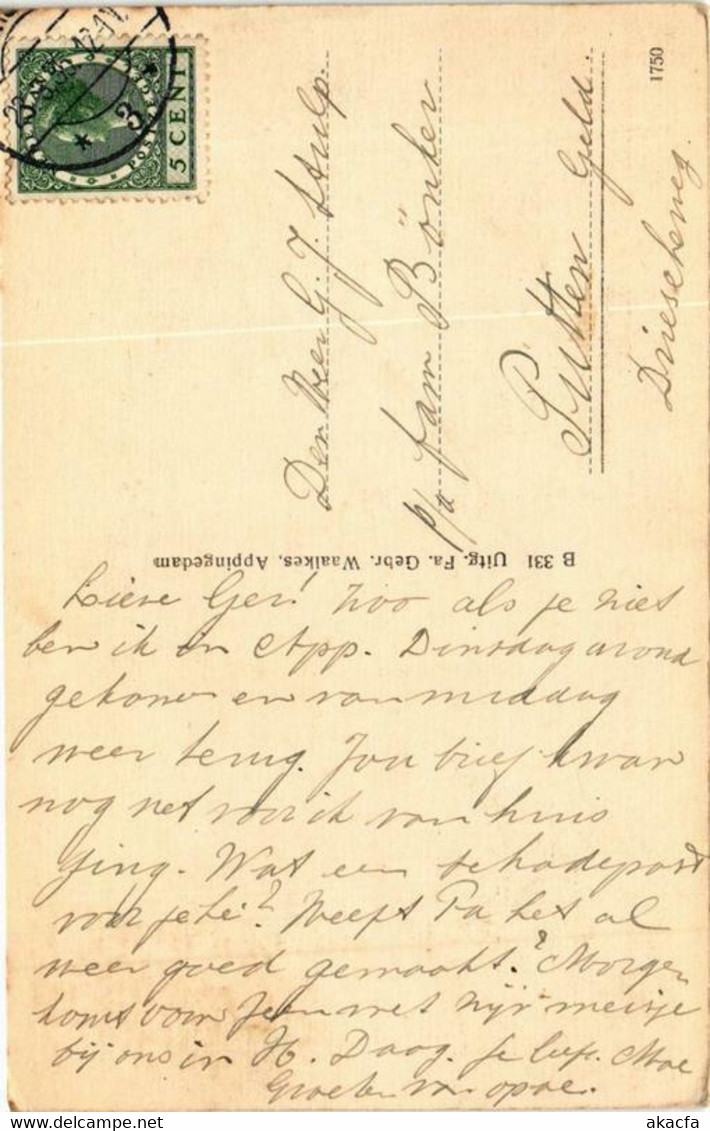 5 CENT
1750
Den Heer G. J. Stulp.
p/a fam Bönker
Putten Geld.
Driescheweg.
B 331 Uitg. Fa. Gebr. Waalkes, Appingedam
Lieve Ger! Zoo als je ziet
ben ik in App. Dinsdagavond
gekomen en vanmiddag
weer terug. Jou brief kwam
nog net voor ik van huis
ging. Wat een schadepost
voor je hè? Heeft Pa het al
weer goed gemaakt? Morgen
komt oom met zijn meisje
bij ons in H. Daag. je liefh. Moe
Groeten van opoe.
akacfa
www.akacfa.com
akacfa